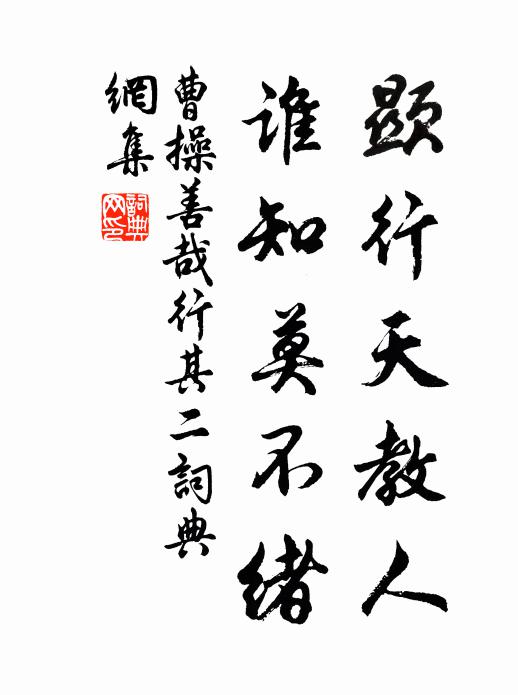 顯行天教人
誰知莫不緒
曹操善哉行其二詞典
網集
詞典
网印